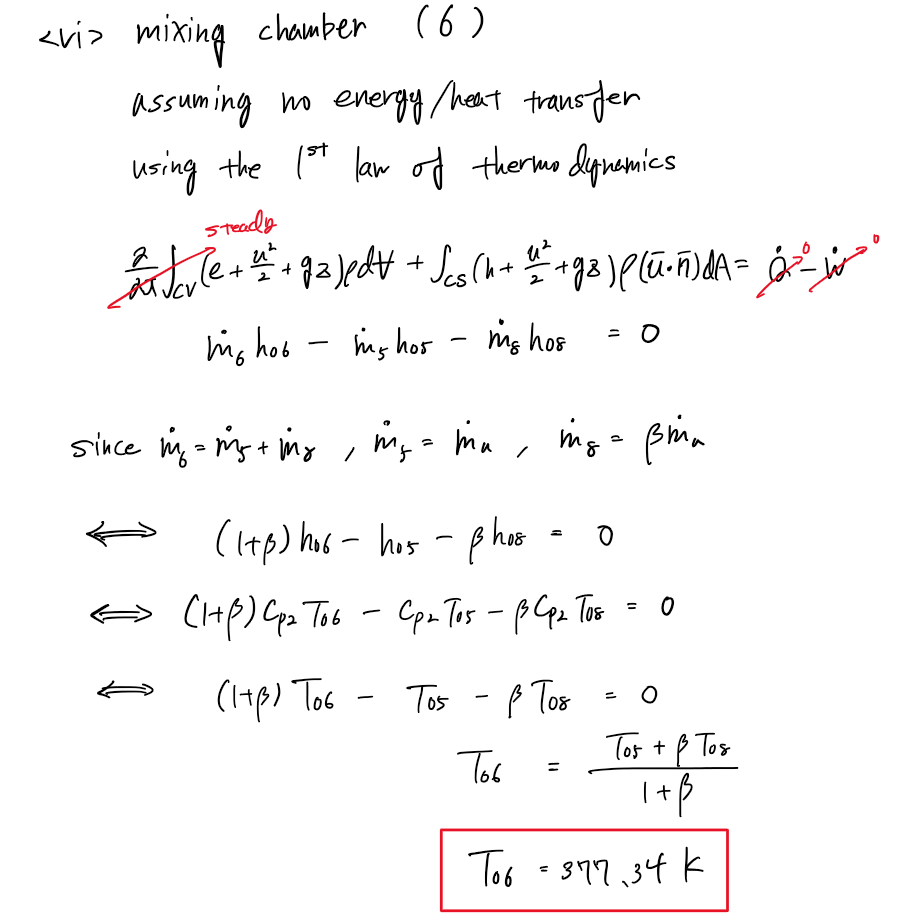 <vi> mixing chamber (6)
assuming no energy/heat transfer
using the 1st law of thermodynamics
steady
∂/∂t ∫cv (e + u²/2 + gz)ρdV + ∫cs (h + u²/2 + gz) ρ(ū·n̄)dA = Q̇ 0 - Ẇ 0
ṁ6 h06 - ṁ5 h05 - ṁ8 h08 = 0
since ṁ6 = ṁ5 + ṁ8 , ṁ5 = ṁa , ṁ8 = βṁa
⟺ (1+β) h06 - h05 - β h08 = 0
⟺ (1+β) Cp2 T06 - Cp2 T05 - β Cp2 T08 = 0
⟺ (1+β) T06 - T05 - β T08 = 0
T06 = (T05 + β T08) / (1+β)
T06 = 377.34 K